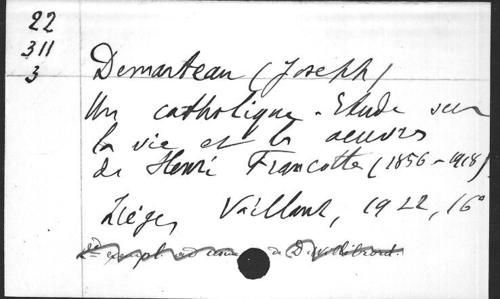 22
311
3
Demarteau (Joseph)
Un catholique. Etude sur
la vie et les oeuvres
de Henri Francotte (1856-1918)
Liége, Vaillant, 1922, 16°
2e exempl. D. Willibrord.